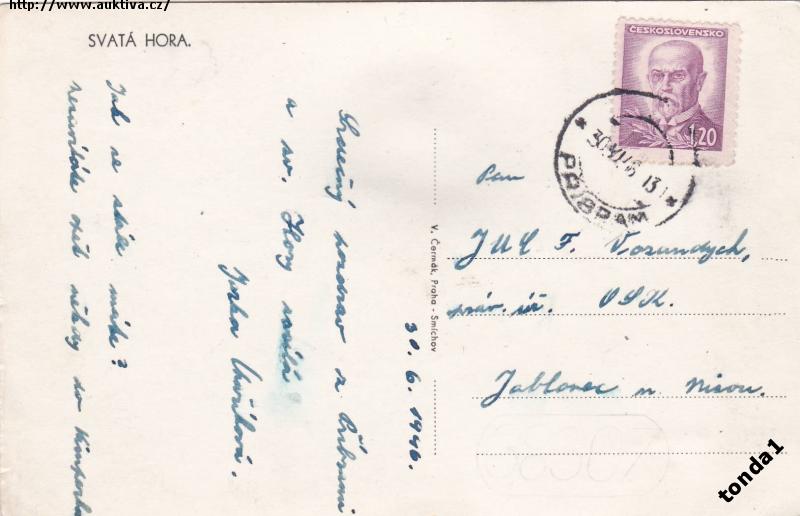 http://www.auktiva.cz/
SVATÁ HORA.
ČESKOSLOVENSKO
1.20
PŘÍBRAM
30.VI.46 13
Pan
JUC F. Vozandych,
práv. úř. OSK.
Jablonec n. Nisou.
V. Čermák, Praha - Smíchov
30. 6. 1946.
Srdečný pozdrav z Příbrami
a sv. Hory zasílá
Jirka
Jak se stále máte?
zase někdy do
tonda1